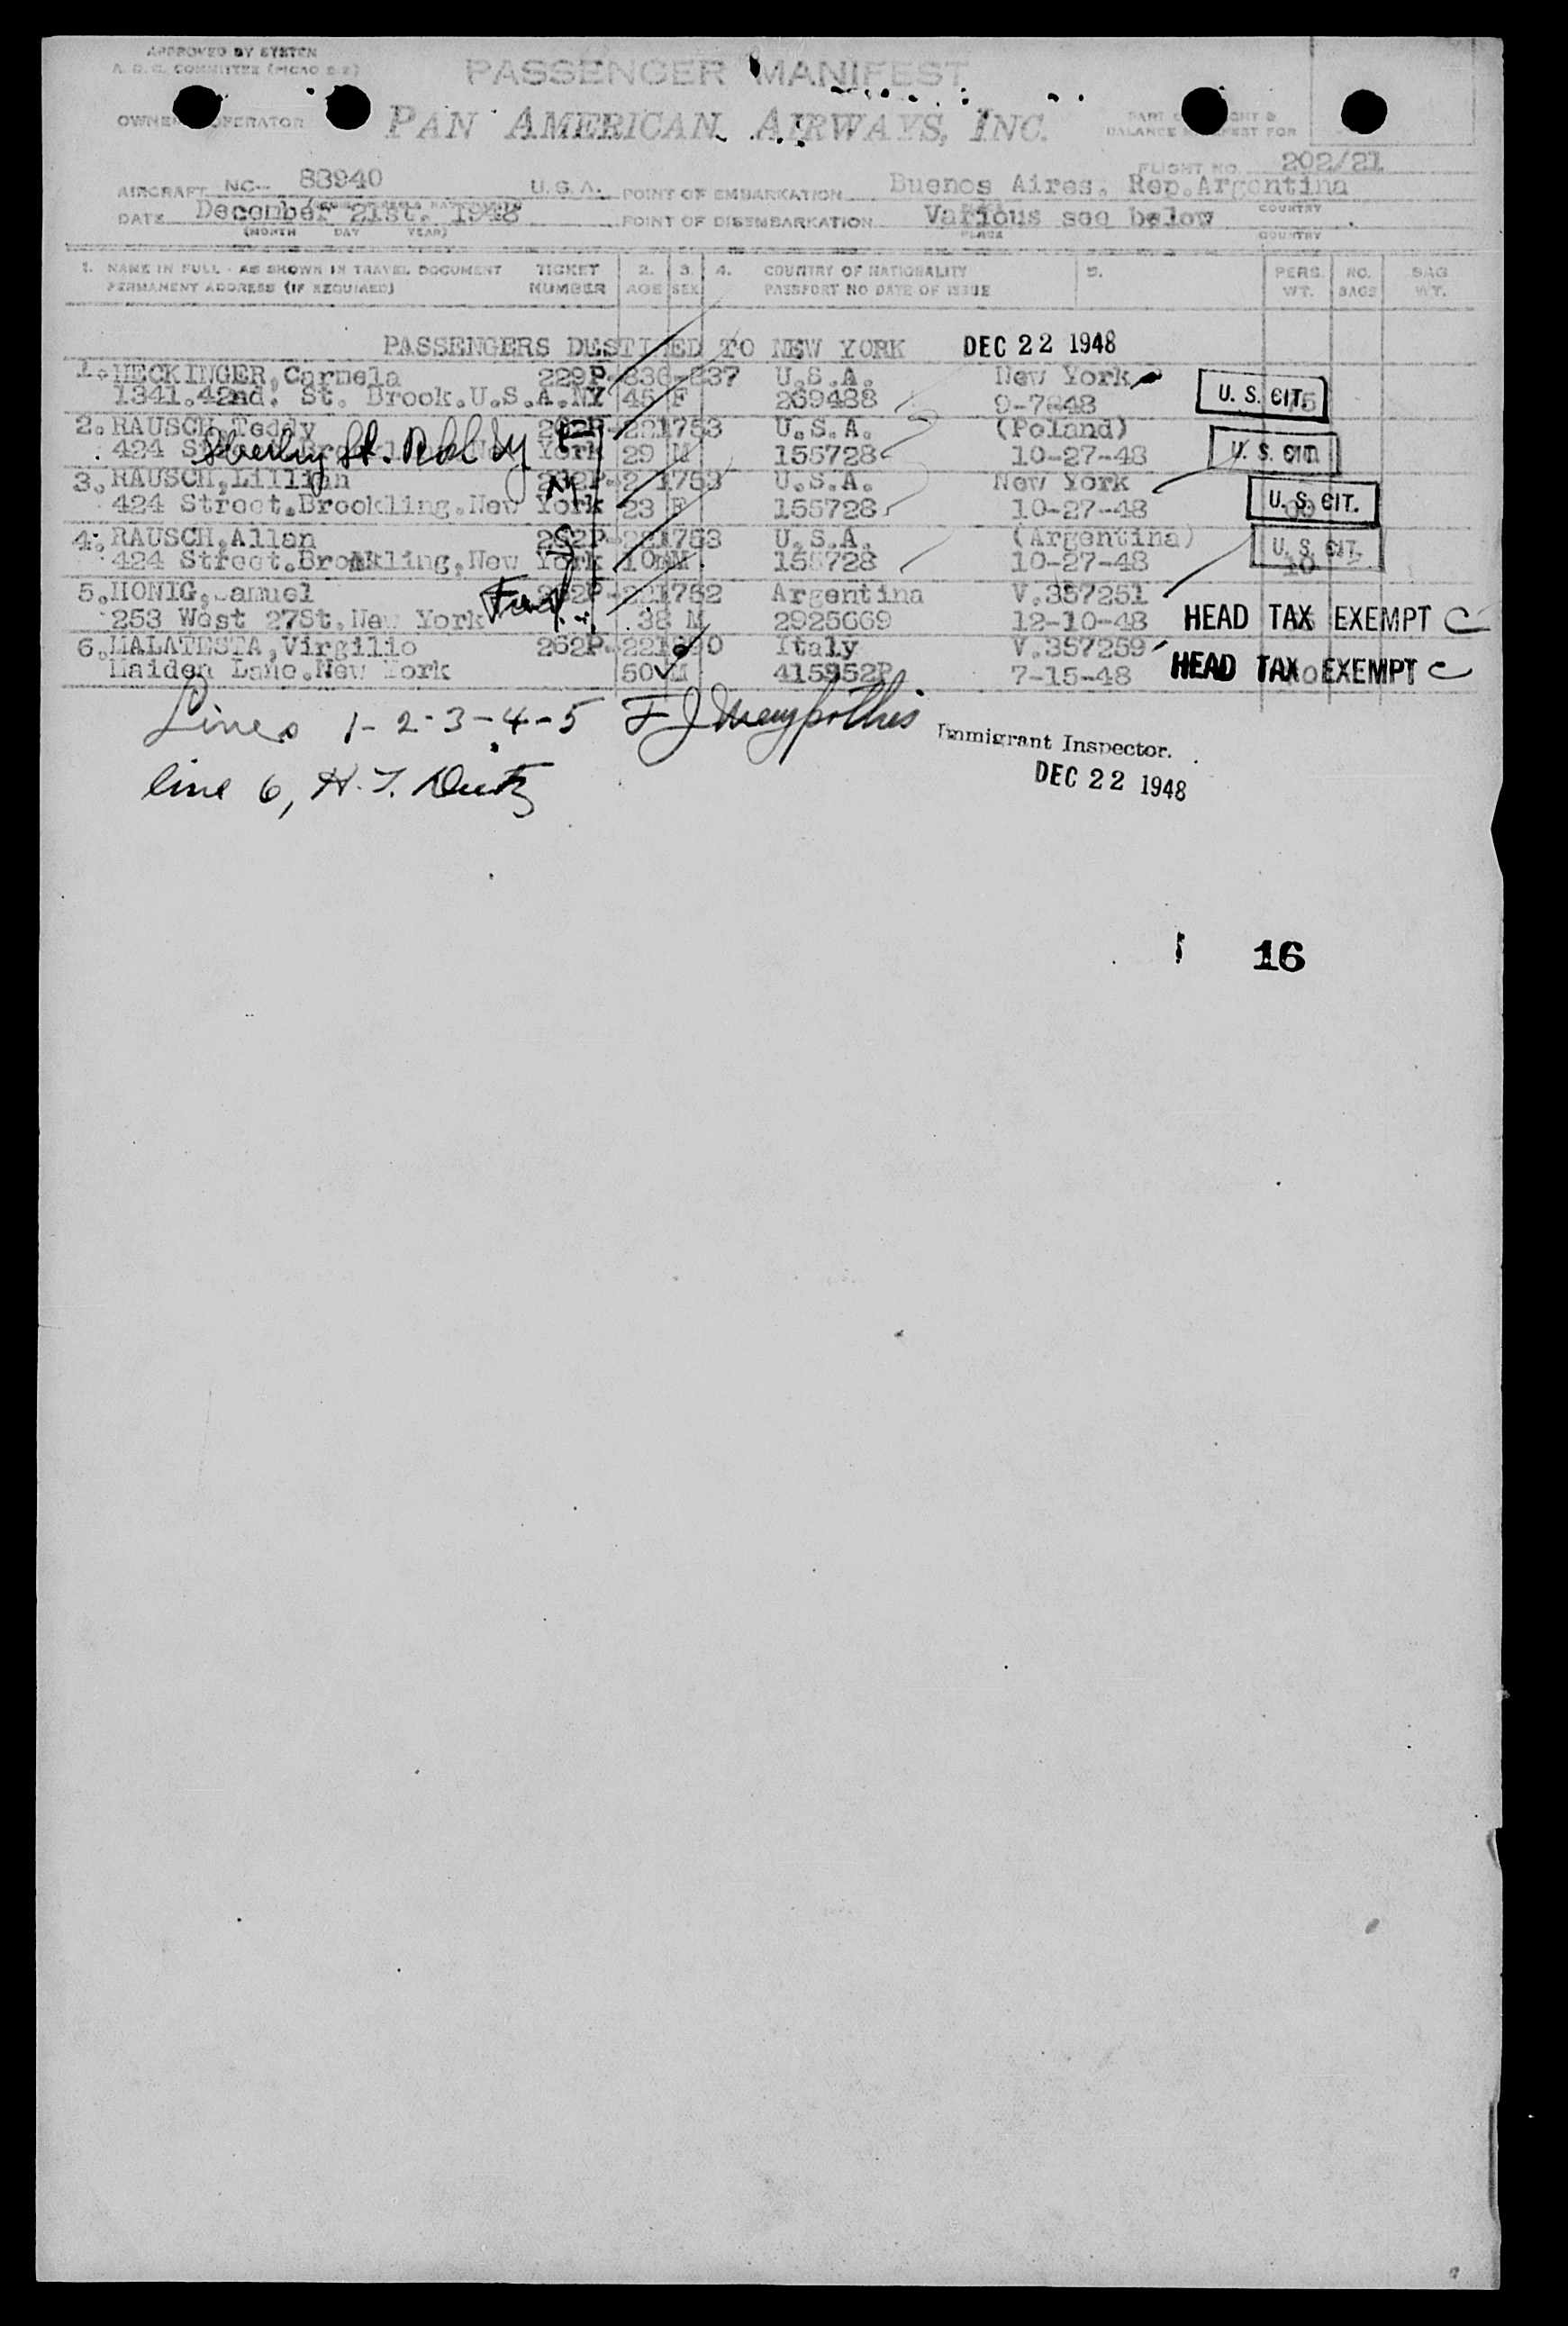 APPROVED BY SYSTEM
A. D. C. COMMITTEE (MCAO 8-2)
PASSENGER MANIFEST
OWNER OPERATOR PAN AMERICAN AIRWAYS, INC.
BALANCE MANIFEST FOR
FLIGHT NO. 202/21
AIRCRAFT NC- 88940 U.S.A. POINT OF EMBARKATION Buenos Aires. Rep.Argentina
DATE December 21st. 1948 POINT OF DISEMBARKATION Various see below COUNTRY
(MONTH DAY YEAR) PLACE COUNTRY
1. NAME IN FULL - AS SHOWN IN TRAVEL DOCUMENT TICKET 2. 3. 4. COUNTRY OF NATIONALITY 5. PERS. NO. BAG
PERMANENT ADDRESS (IF REQUIRED) NUMBER AGE SEX PASSPORT NO DATE OF ISSUE WT. BAGS WT.
PASSENGERS DESTINED TO NEW YORK DEC 22 1948
1. HECKINGER, Carmela 229P-836-837 U.S.A. New York
1341.42nd. St. Brook.U.S.A.NY 45 F 269488 9-7-48 U. S. CIT.
2. RAUSCH, Teddy 262P-221753 U.S.A. (Poland)
424 St. York 29 M 155728 10-27-48 U. S. CIT.
3. RAUSCH, Lillian 262P-221753 U.S.A. New York
424 Street.Brookling.New York 23 F 155728 10-27-48 U. S. CIT.
4. RAUSCH, Allan 262P-221753 U.S.A. (Argentina)
424 Street.Brookling, New York 10m M 155728 10-27-48 U. S. CIT.
5. HONIG, Samuel 262P-221752 Argentina V.357251
253 West 27St, New York 38 M 2925669 12-10-48 HEAD TAX EXEMPT C
6. MALATESTA, Virgilio 262P- Italy V.357259
Maiden Lane.New York 50 M 415952P 7-15-48 HEAD TAX EXEMPT C
Lines 1-2-3-4-5 F J
Immigrant Inspector.
DEC 22 1948
line 6, H. T.
16